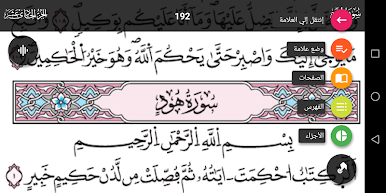 192
إنتقل إلي العلامة
وضع علامة
الصفحات
الفهرس
الأجزاء
ضَلَّ فَإِنَّمَا يَضِلُّ عَلَيْهَا وَمَا أَنَا۠ عَلَيْكُم بِوَكِيلٍ
مَا يُوحَىٰ إِلَيْكَ وَٱصْبِرْ حَتَّىٰ يَحْكُمَ ٱللَّهُ وَهُوَ خَيْرُ ٱلْحَٰكِمِينَ
سُورَةُ هُودٍ
بِسْمِ ٱللَّهِ ٱلرَّحْمَٰنِ ٱلرَّحِيمِ
كِتَٰبٌ أُحْكِمَتْ ءَايَٰتُهُۥ ثُمَّ فُصِّلَتْ مِن لَّدُنْ حَكِيمٍ خَبِيرٍ ١